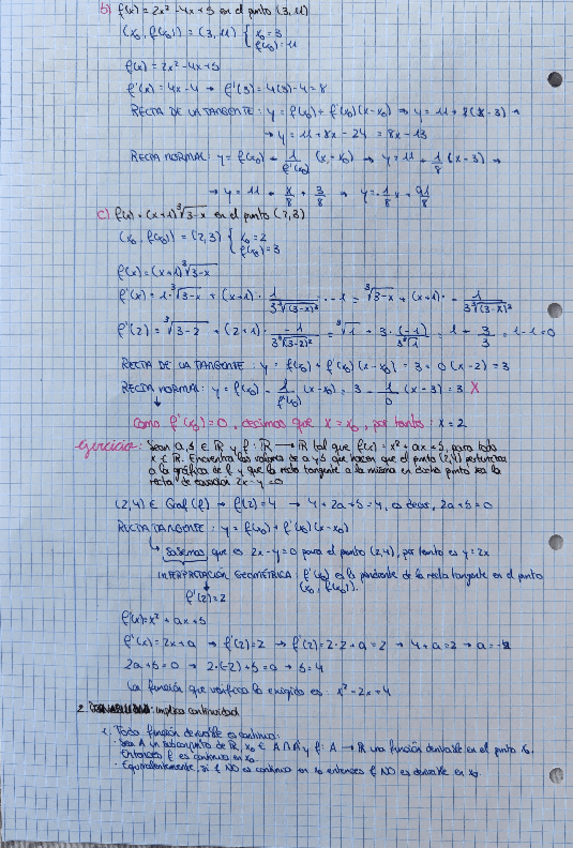 b) f(x) = 2x² - 4x + 5 en el punto (3, 11)
(x₀, f(x₀)) = (3, 11) { x₀ = 3
f(x₀) = 11
f(x) = 2x² - 4x + 5
f'(x) = 4x - 4 → f'(3) = 4(3) - 4 = 8
RECTA DE LA TANGENTE: y = f(x₀) + f'(x₀)(x - x₀) → y = 11 + 8(x - 3) →
→ y = 11 + 8x - 24 = 8x - 13
RECTA NORMAL: y = f(x₀) - 1/f'(x₀) (x - x₀) → y = 11 - 1/8 (x - 3) →
→ y = 11 - x/8 + 3/8 → y = -1/8 x + 91/8
c) f(x) = (x+1) ∛(3-x) en el punto (2,3)
(x₀, f(x₀)) = (2,3) { x₀ = 2
f(x₀) = 3
f(x) = (x+1) ∛(3-x)
f'(x) = 1·∛(3-x) + (x+1) · 1/(3∛(3-x)²) · -1 = ∛(3-x) + (x+1) · - 1/(3∛(3-x)²)
f'(2) = ∛(3-2) + (2+1) · -1/(3∛(3-2)²) = ∛1 + 3 · (-1)/(3∛1) = 1 + 3/3 = 1 - 1 = 0
RECTA DE LA TANGENTE: y = f(x₀) + f'(x₀)(x - x₀) = 3 + 0(x - 2) = 3
RECTA NORMAL: y = f(x₀) - 1/f'(x₀) (x - x₀) = 3 - 1/0 (x - 3) = 3 X
Como f'(x₀) = 0, decimos que x = x₀, por tanto: x = 2
Ejercicio: Sean a, b ∈ ℝ y f: ℝ → ℝ tal que f(x) = x² + ax + b, para todo
x ∈ ℝ. Encuentra los valores de a y b que hacen que el punto (2,4) pertenezca
a la gráfica de f y que la recta tangente a la misma en dicho punto sea la
recta de ecuación 2x - y = 0
(2,4) ∈ Graf(f) → f(2) = 4 → 4 + 2a + b = 4, es decir, 2a + b = 0
RECTA TANGENTE: y = f(x₀) + f'(x₀)(x - x₀)
↳ Sabemos que es 2x - y = 0 para el punto (2,4), por tanto es y = 2x
INTERPRETACIÓN GEOMÉTRICA: f'(x₀) es la pendiente de la recta tangente en el punto
(x₀, f(x₀)).
f'(2) = 2
f(x) = x² + ax + b
f'(x) = 2x + a → f'(2) = 2 → f'(2) = 2·2 + a = 2 → 4 + a = 2 → a = -2
2a + b = 0 → 2·(-2) + b = 0 → b = 4
La función que verifica lo exigido es: x² - 2x + 4
2. implica continuidad
1. Toda función derivable es continua:
· Sea A un subconjunto de ℝ, x₀ ∈ A ∩ A' y f: A → ℝ una función derivable en el punto x₀.
Entonces f es continua en x₀.
· Equivalentemente, si f NO es continua en x₀ entonces f NO es derivable en x₀.